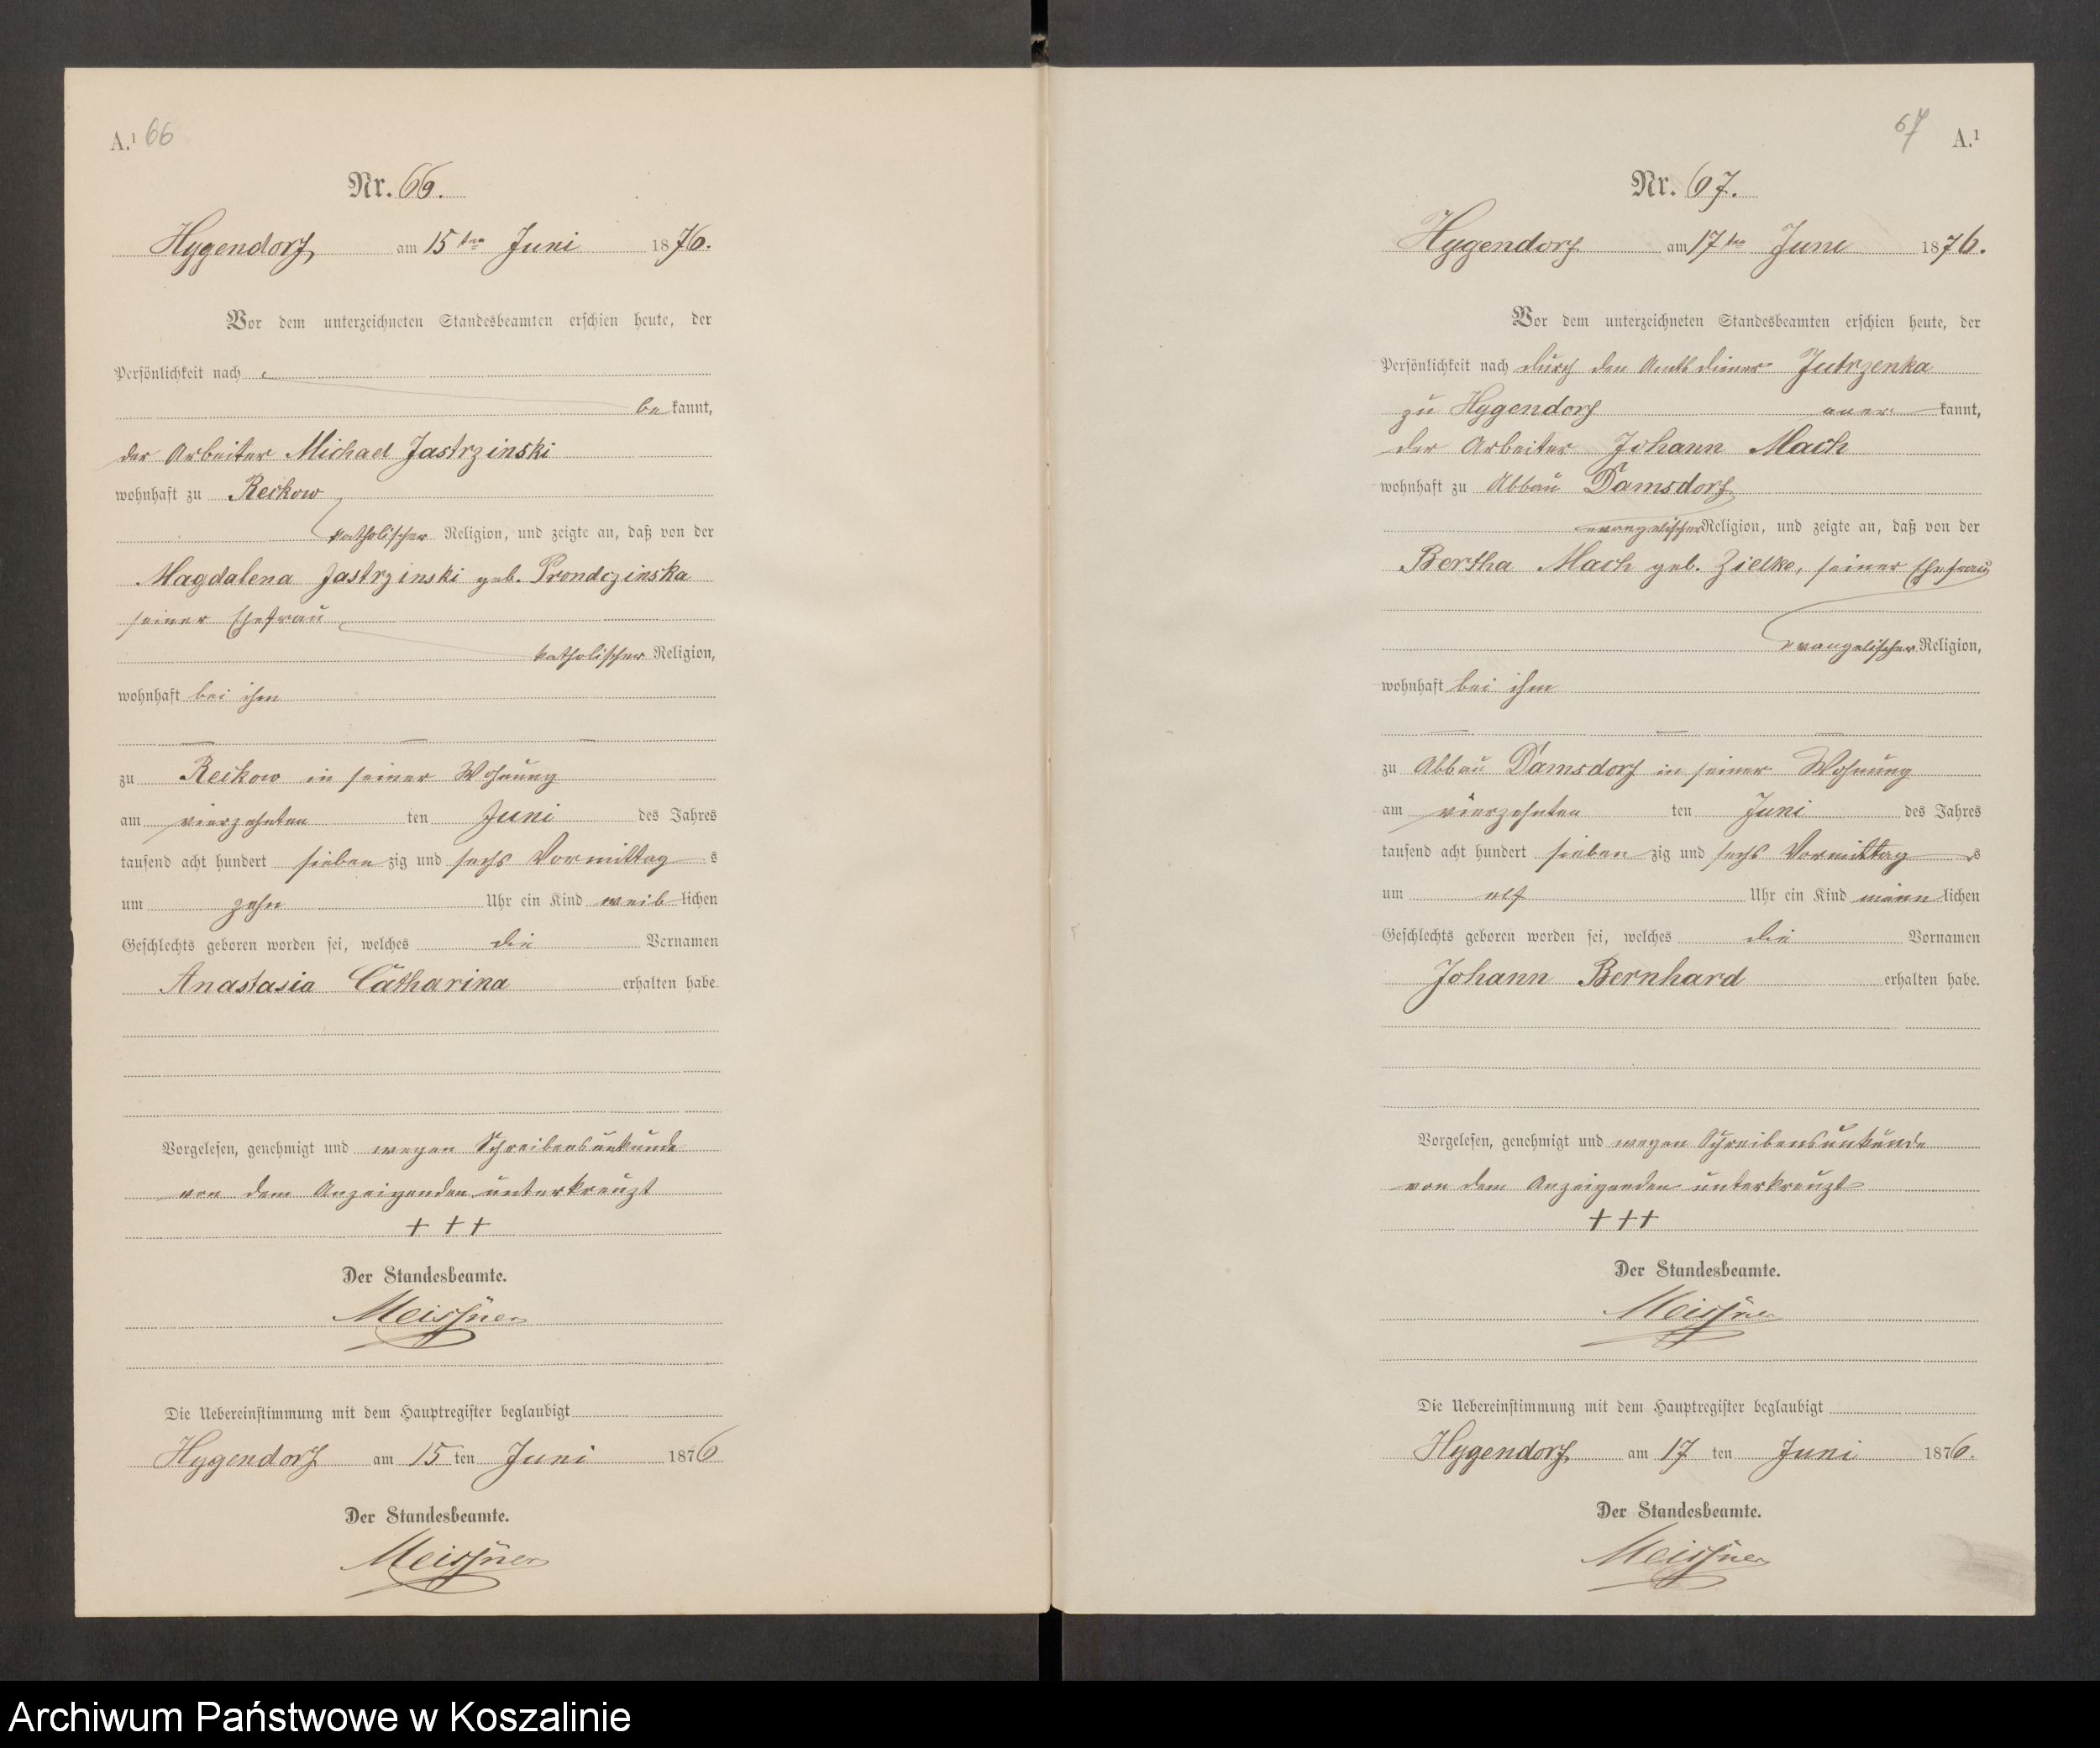 A.¹ 66
Nr. 66.
Hygendorf am 15ten Juni 1876.
Vor dem unterzeichneten Standesbeamten erschien heute, der
Persönlichkeit nach
bekannt,
der Arbeiter Michael Jastrzinski
wohnhaft zu Reckow
katholischer Religion, und zeigte an, daß von der
Magdalena Jastrzinski geb. Prondczinska
seiner Ehefrau
katholischer Religion,
wohnhaft bei ihm
zu Reckow in seiner Wohnung
am vierzehnten ten Juni des Jahres
tausend acht hundert sieben zig und sechs Vormittag s
um zehn Uhr ein Kind weib lichen
Geschlechts geboren worden sei, welches die Vornamen
Anastasia Catharina erhalten habe.
Vorgelesen, genehmigt und wegen Schreibensunkunde
von dem Anzeigenden unterkreuzt
+ + +
Der Standesbeamte.
Meissner
Die Uebereinstimmung mit dem Hauptregister beglaubigt
Hygendorf am 15 ten Juni 1876
Der Standesbeamte.
Meissner
67 A.¹
Nr. 67.
Hygendorf am 17ten Juni 1876.
Vor dem unterzeichneten Standesbeamten erschien heute, der
Persönlichkeit nach durch den Amtsdiener Jutrzenka
zu Hygendorf aner kannt,
der Arbeiter Johann Mach
wohnhaft zu Abbau Damsdorf
evangelischer Religion, und zeigte an, daß von der
Bertha Mach geb. Zielke, seiner Ehefrau
evangelischer Religion,
wohnhaft bei ihm
zu Abbau Damsdorf in seiner Wohnung
am vierzehnten ten Juni des Jahres
tausend acht hundert sieben zig und sechs Vormittag s
um elf Uhr ein Kind männ lichen
Geschlechts geboren worden sei, welches die Vornamen
Johann Bernhard erhalten habe.
Vorgelesen, genehmigt und wegen Schreibensunkunde
von dem Anzeigenden unterkreuzt
+ + +
Der Standesbeamte.
Meissner
Die Uebereinstimmung mit dem Hauptregister beglaubigt
Hygendorf am 17 ten Juni 1876.
Der Standesbeamte.
Meissner
Archiwum Państwowe w Koszalinie